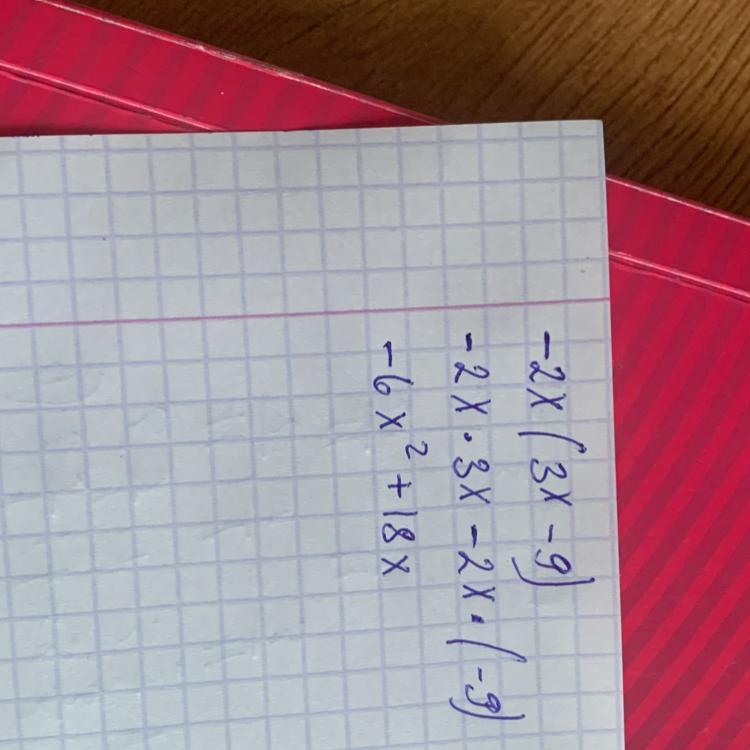 -2x (3x - 9)
-2x · 3x - 2x · (-9)
-6x² + 18x